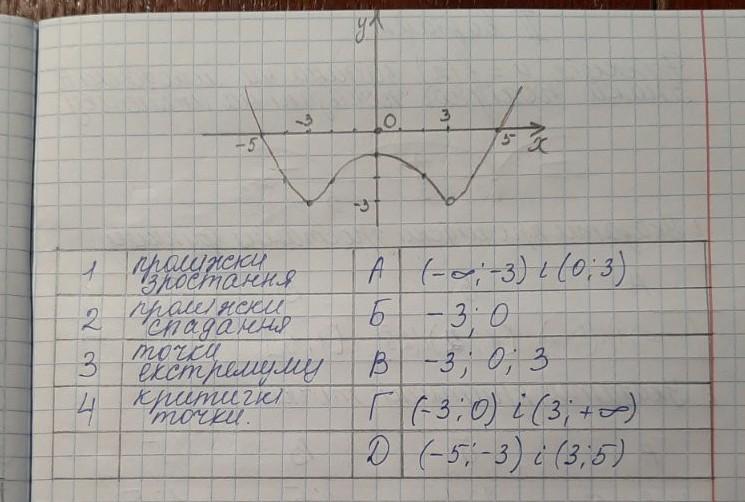 y
-3 0 3
-5 5 x
-3
1 проміжки зростання А (-∞; -3) і (0; 3)
2 проміжки спадання Б -3; 0
3 точки екстремуму В -3; 0; 3
4 критичні точки. Г (-3; 0) і (3; +∞)
Д (-5; -3) і (3; 5)